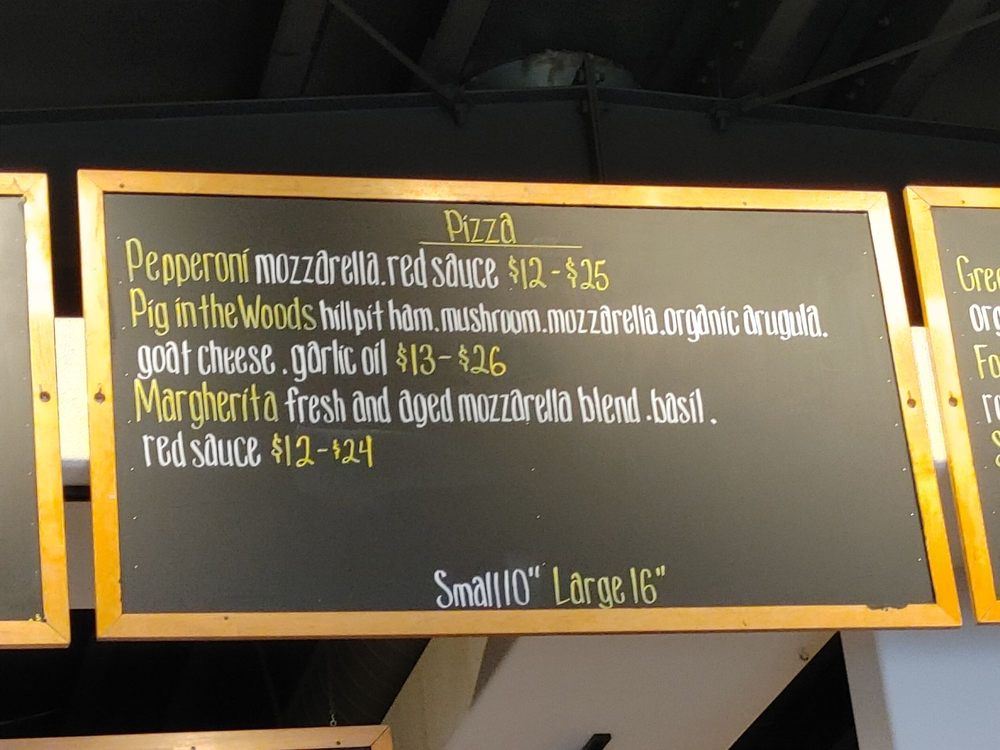 Pizza
Pepperoni mozzarella.red sauce $12-$25
Pig in the Woods hillpit ham.mushroom.mozzarella.organic arugula.
goat cheese.garlic oil $13-$26
Margherita fresh and aged mozzarella blend.basil.
red sauce $12-$24
Small 10" Large 16"